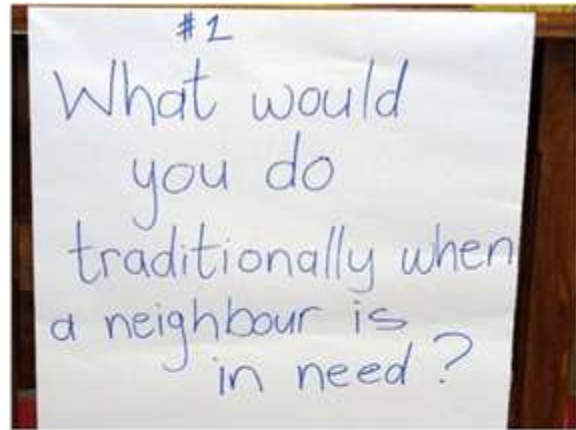 #1
What would
you do
traditionally when
a neighbour is
in need?